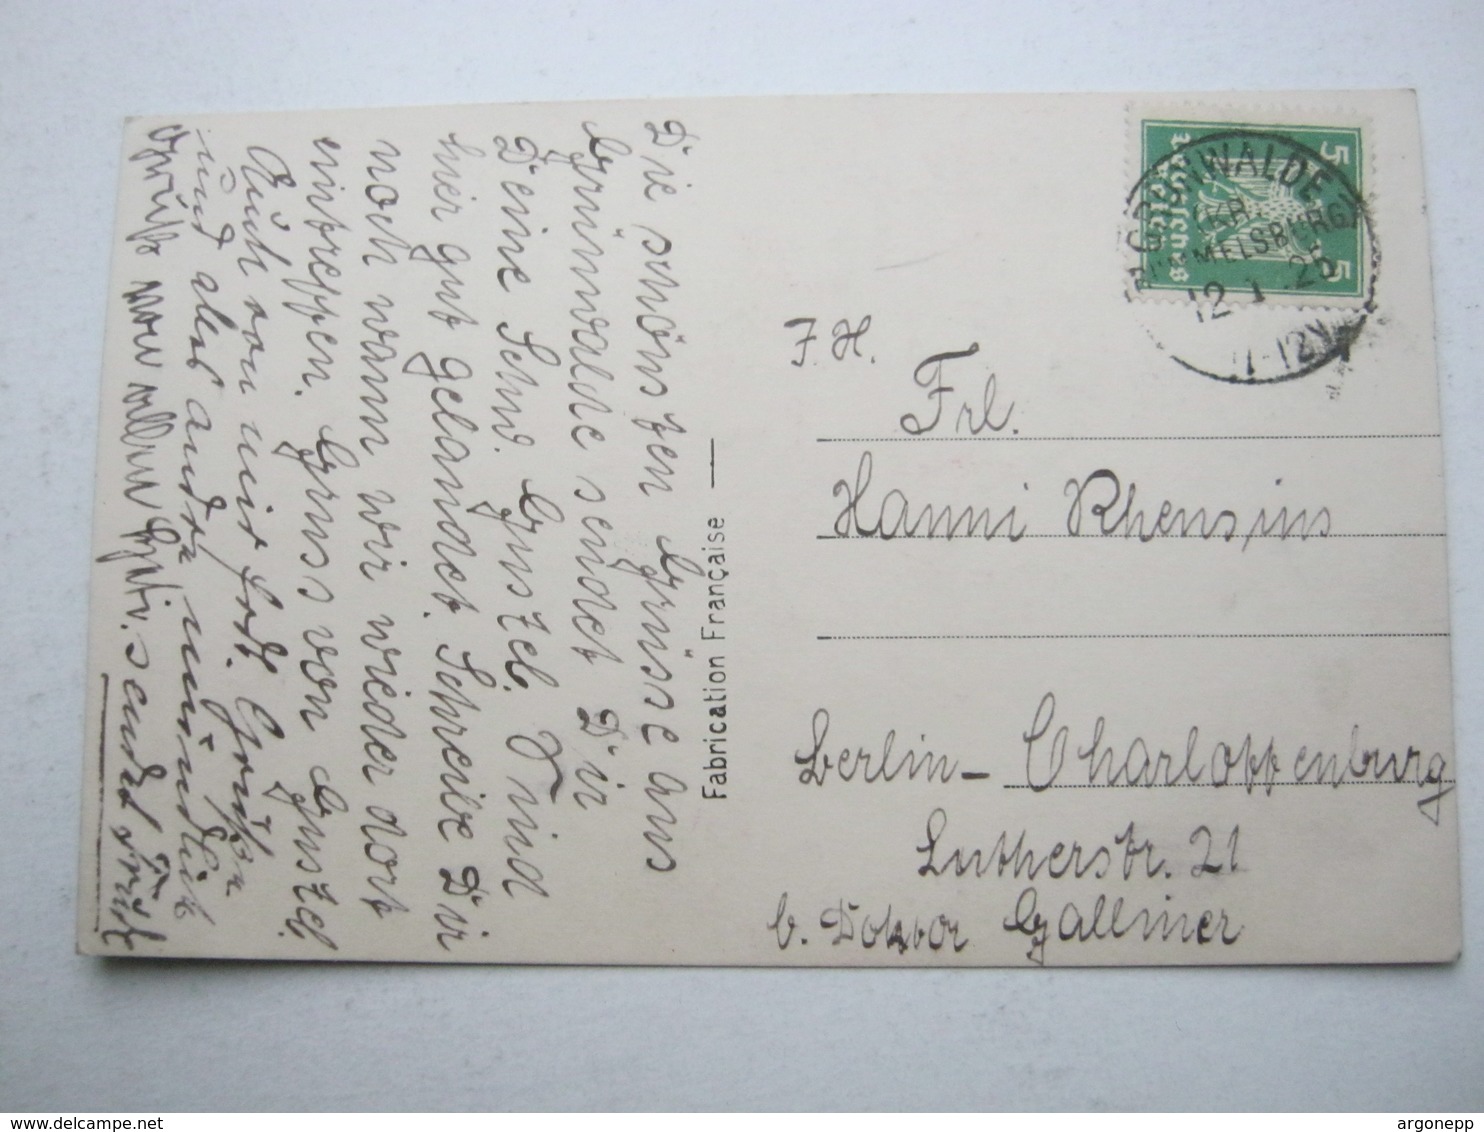 Die schönsten Grüsse aus
Grünwalde sendet Dir
Deine Schw. Gustel. Sind
hier gut gelandet. Schreibe Dir
noch wann wir wieder dort
eintreffen. Gruss von Gustel.
Auch von mir hrdl. Grüße
und alles andre mündlich
Grüße von allen
sendet
Fabrication Française
Deutsches Reich
5 5
GRÜNWALDE
(KR.
RUMMELSBURG)
12. 1. 25
11-12V
F. H.
Frl.
Hanni Rhensius
Berlin- Charlottenburg
Lutherstr. 21
b. Doktor Gallmer
delcampe.net
argonepp